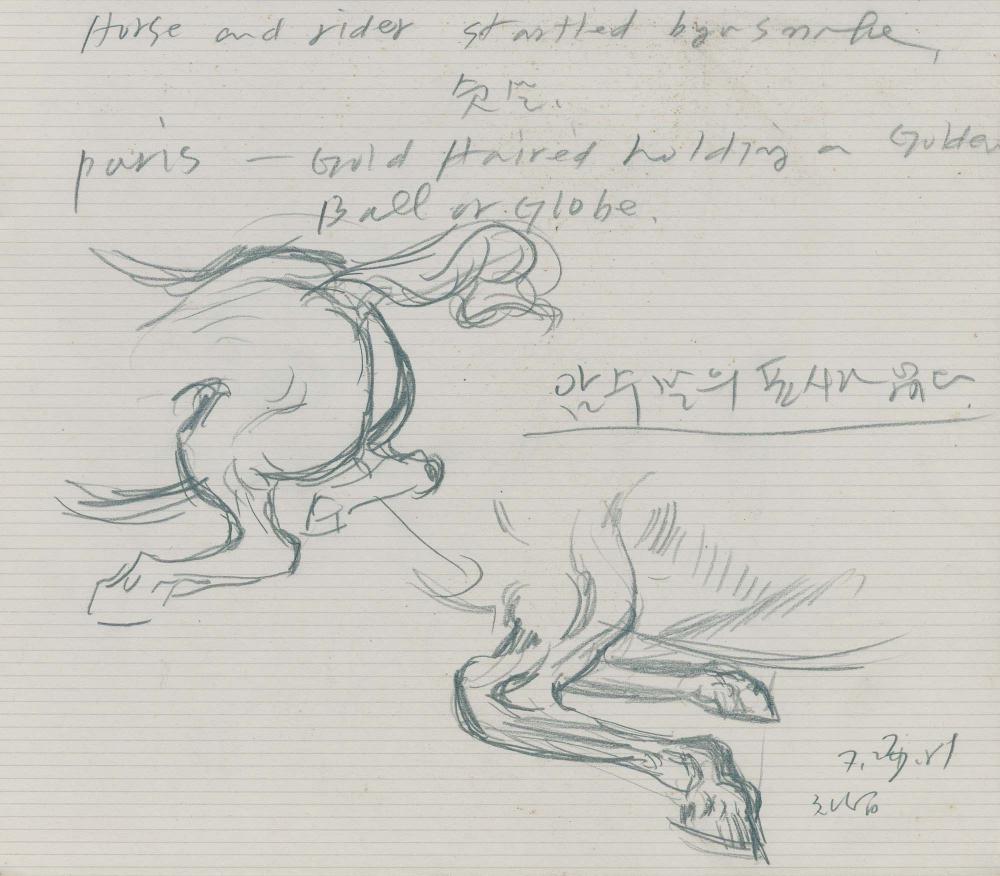 Horse and rider startled by a snake,
숫말.
paris — Gold Haired holding a Golden
Ball or Globe.
암수말의 표시가 묶다.